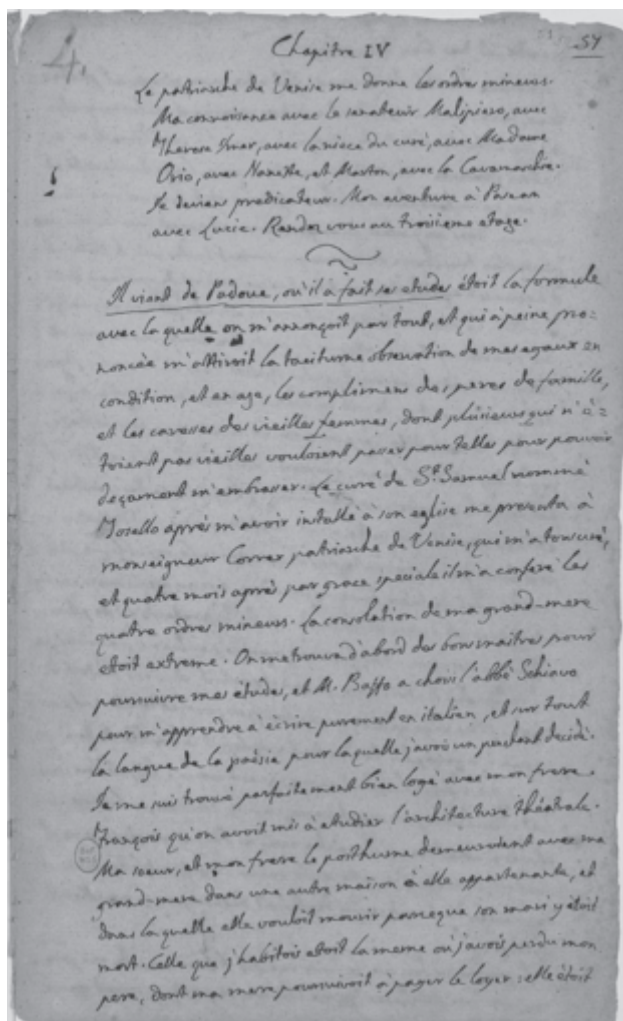 4.
57
Chapitre IV
Le patriarche de Venise me donne les ordres mineurs.
Ma connoissance avec le senateur Malipiero, avec
Therese Imer, avec la niece du curé, avec Madame
Orio, avec Nanette, et Marton, avec la Cavamachie.
Je deviens predicateur. Mon aventure à Pasean
avec Lucie. Rendez vous au troisieme etage.
Il vient de Padoue, où il a fait ses etudes étoit la formule
avec la quelle on m'annonçoit par tout, et qui à peine pro=
noncée m'attiroit la taciturne observation de mes egaux en
condition, et en age, les complimens des peres de famille,
et les caresses des vieilles femmes, dont plusieurs qui n'é=
toient pas vieilles vouloient passer pour telles pour pouvoir
deçament m'embrasser. Le curé de St. Samuel nommé
Tosello après m'avoir installé à son eglise me presenta à
monseigneur Correr patriarche de Venise, qui m'a tonsuré,
et quatre mois après par grace speciale il m'a conferé les
quatre ordres mineurs. La consolation de ma grand-mere
etoit extreme. On me trouva d'abord des bons maitres pour
poursuivre mes études, et M. Baffo a choisi l'abbé Schiavo
pour m'apprendre à écrire purement en italien, et sur tout
la langue de la poèsie pour laquelle j'avois un penchant decidé.
Je me suis trouvé parfaitement bien logé avec mon frere
François qu'on avoit mis à etudier l'architecture théatrale.
Ma soeur, et mon frere le posthume demeuroient avec ma
grand-mere dans une autre maison à elle appartenante, et
dans la quelle elle vouloit mourir parceque son mari y étoit
mort. Celle que j'habitois etoit la meme où j'avois perdu mon
pere, dont ma mere poursuivoit à payer le loyer : elle étoit